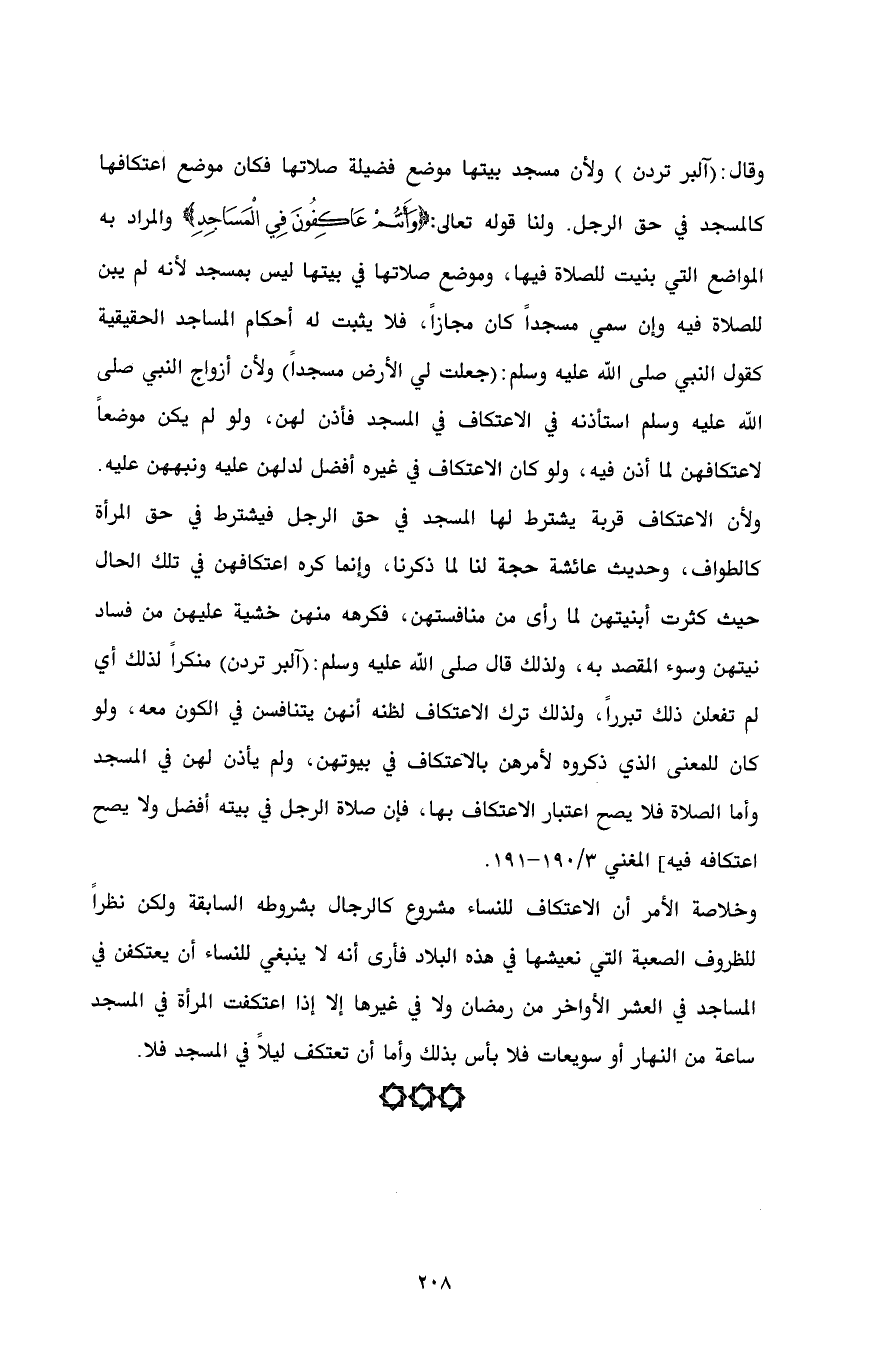 وقال:(آلبر تردن ) ولأن مسجد بيتها موضع فضيلة صلاتها فكان موضع اعتكافها
كالمسجد في حق الرجل. ولنا قوله تعالى:﴿وَأَنْتُمْ عَاكِفُونَ فِي الْمَسَاجِدِ﴾ والمراد به
المواضع التي بنيت للصلاة فيها، وموضع صلاتها في بيتها ليس بمسجد لأنه لم يبن
للصلاة فيه وإن سمي مسجداً كان مجازاً، فلا يثبت له أحكام المساجد الحقيقية
كقول النبي صلى الله عليه وسلم:(جعلت لي الأرض مسجداً) ولأن أزواج النبي صلى
الله عليه وسلم استأذنه في الاعتكاف في المسجد فأذن لهن، ولو لم يكن موضعاً
لاعتكافهن لما أذن فيه، ولو كان الاعتكاف في غيره أفضل لدلهن عليه ونبههن عليه.
ولأن الاعتكاف قربة يشترط لها المسجد في حق الرجل فيشترط في حق المرأة
كالطواف، وحديث عائشة حجة لنا لما ذكرنا، وإنما كره اعتكافهن في تلك الحال
حيث كثرت أبنيتهن لما رأى من منافستهن، فكرهه منهن خشية عليهن من فساد
نيتهن وسوء المقصد به، ولذلك قال صلى الله عليه وسلم:(آلبر تردن) منكراً لذلك أي
لم تفعلن ذلك تبرراً، ولذلك ترك الاعتكاف لظنه أنهن يتنافسن في الكون معه، ولو
كان للمعنى الذي ذكروه لأمرهن بالاعتكاف في بيوتهن، ولم يأذن لهن في المسجد
وأما الصلاة فلا يصح اعتبار الاعتكاف بها، فإن صلاة الرجل في بيته أفضل ولا يصح
اعتكافه فيه] المغني ١٩٠/٣-١٩١.
وخلاصة الأمر أن الاعتكاف للنساء مشروع كالرجال بشروطه السابقة ولكن نظراً
للظروف الصعبة التي نعيشها في هذه البلاد فأرى أنه لا ينبغي للنساء أن يعتكفن في
المساجد في العشر الأواخر من رمضان ولا في غيرها إلا إذا اعتكفت المرأة في المسجد
ساعة من النهار أو سويعات فلا بأس بذلك وأما أن تعتكف ليلاً في المسجد فلا.
٢٠٨